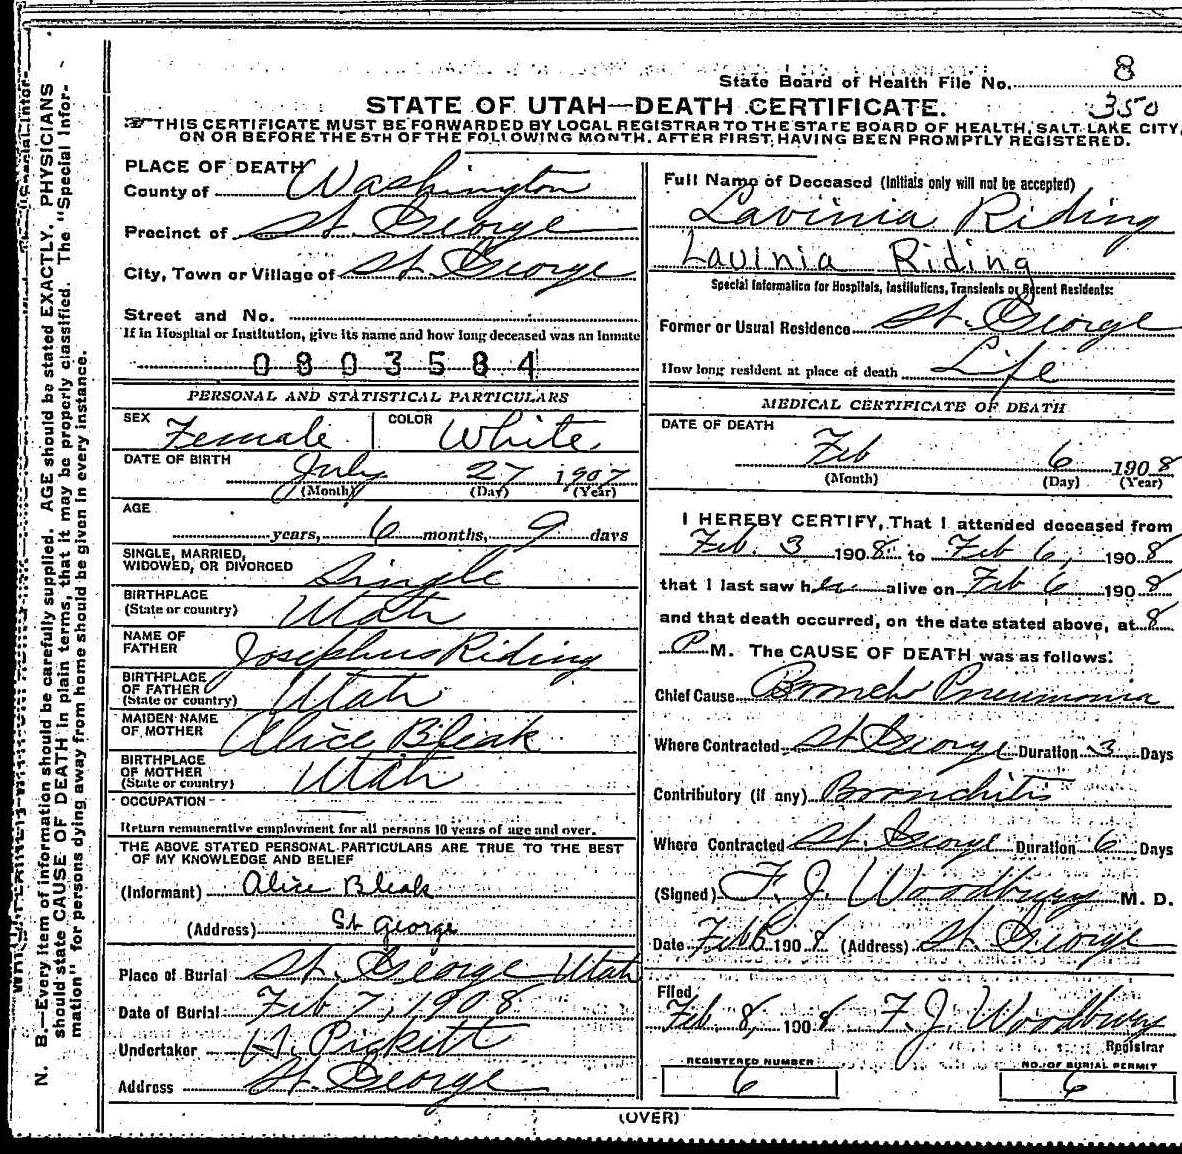 8
State Board of Health File No.
350
STATE OF UTAH—DEATH CERTIFICATE.
THIS CERTIFICATE MUST BE FORWARDED BY LOCAL REGISTRAR TO THE STATE BOARD OF HEALTH, SALT LAKE CITY,
ON OR BEFORE THE 5TH OF THE FOLLOWING MONTH. AFTER FIRST HAVING BEEN PROMPTLY REGISTERED.
PLACE OF DEATH
County of Washington
Precinct of St. George
City, Town or Village of St. George
Street and No.
If in Hospital or Institution, give its name and how long deceased was an inmate
0803584
PERSONAL AND STATISTICAL PARTICULARS
SEX Female COLOR White
DATE OF BIRTH July 27 1907
(Month) (Day) (Year)
AGE
years, 6 months, 9 days
SINGLE, MARRIED,
WIDOWED, OR DIVORCED Single
BIRTHPLACE
(State or country) Utah
NAME OF
FATHER Josephus Riding
BIRTHPLACE
OF FATHER
(State or country) Utah
MAIDEN NAME
OF MOTHER Alice Bleak
BIRTHPLACE
OF MOTHER
(State or country) Utah
OCCUPATION
Return remunerative employment for all persons 10 years of age and over.
THE ABOVE STATED PERSONAL PARTICULARS ARE TRUE TO THE BEST
OF MY KNOWLEDGE AND BELIEF
(Informant) Alice Bleak
(Address) St George
Place of Burial St. George Utah
Date of Burial Feb 7, 1908
Undertaker A. Pickett
Address St. George
Full Name of Deceased (Initials only will not be accepted)
Lavinia Riding
Lavinia Riding
Special Information for Hospitals, Institutions, Transients or Recent Residents:
Former or Usual Residence St. George
How long resident at place of death Life
MEDICAL CERTIFICATE OF DEATH
DATE OF DEATH
Feb 6 1908
(Month) (Day) (Year)
I HEREBY CERTIFY, That I attended deceased from
Feb. 3 1908 to Feb 6, 1908
that I last saw her alive on Feb 6 1908
and that death occurred, on the date stated above, at 8
P M. The CAUSE OF DEATH was as follows:
Chief Cause Broncho Pneumonia
Where Contracted St George Duration 3 Days
Contributory (if any) Bronchitis
Where Contracted St. George Duration 6 Days
(Signed) F. J. Woodbury M. D.
Date Feb 6 1908 (Address) St. George
Filed
Feb. 8, 1908 F. J. Woodbury
Registrar
REGISTERED NUMBER
6
NO. OF BURIAL PERMIT
6
(OVER)
N. B.—Every item of information should be carefully supplied. AGE should be stated EXACTLY. PHYSICIANS
should state CAUSE OF DEATH in plain terms, that it may be properly classified. The "Special Infor-
mation" for persons dying away from home should be given in every instance.